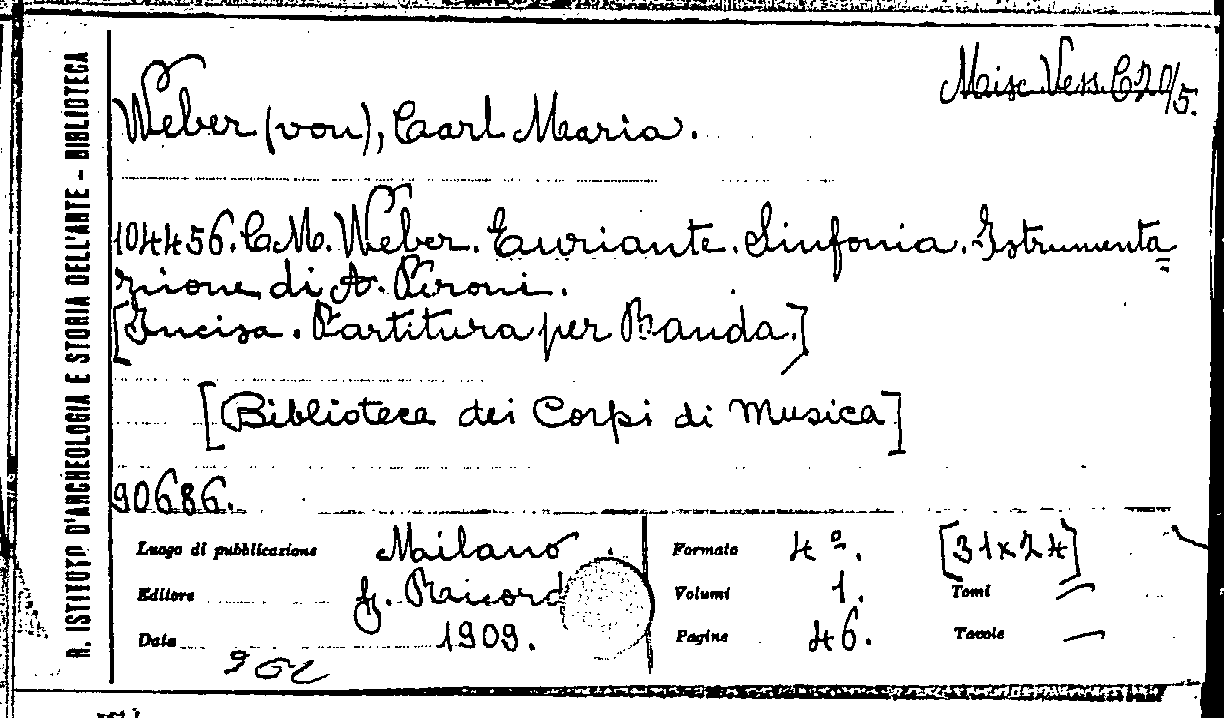 R. ISTITUTO D'ARCHEOLOGIA E STORIA DELL'ARTE - BIBLIOTECA
Misc. Vess. C 20/5.
Weber (von), Carl Maria.
104456. C. M. Weber. Euriante. Sinfonia. Istrumenta
zione di A. Peroni.
[Incisa. Partitura per Banda.]
[Biblioteca dei Corpi di Musica]
90686.
Luogo di pubblicazione Milano
Editore G. Ricordi
Data 1909.
Formato 4º. [31x24]
Volumi 1. Tomi —
Pagine 46. Tavole —